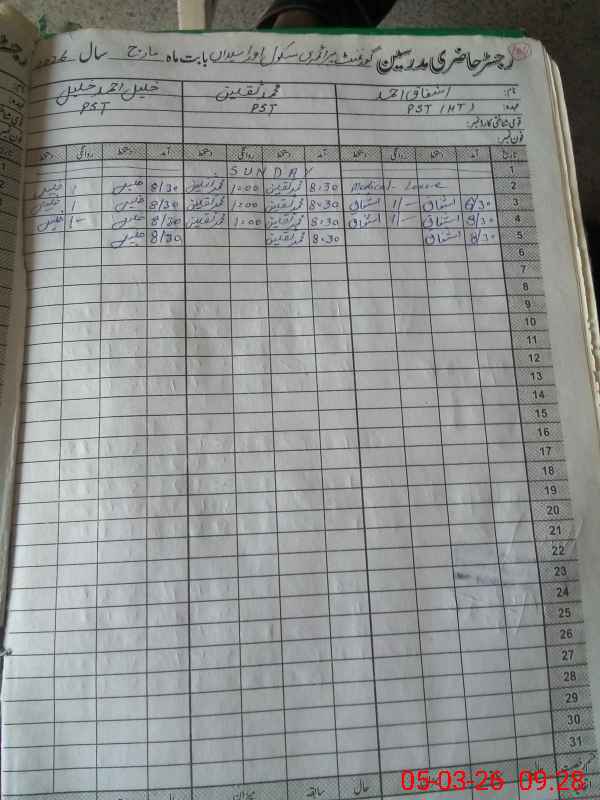 رجسٹر حاضری مدرسین گورنمنٹ پرائمری سکول بابت ماہ مارچ سال 2026
نام: اشفاق احمد محمد ثقلین خلیل احمد خلیل
عہدہ: PST (HT) PST PST
قومی شناختی کارڈ نمبر:
فون نمبر:
تاریخ آمد دستخط روانگی دستخط آمد دستخط روانگی دستخط آمد دستخط روانگی دستخط
1 SUNDAY
2 Medical - Leave 8:30 محمد ثقلین 1:00 محمد ثقلین 8/30 خلیل 1 خلیل
3 8/30 اشفاق 1/- اشفاق 8:30 محمد ثقلین 1:00 محمد ثقلین 8/30 خلیل 1 خلیل
4 8/30 اشفاق 1/- اشفاق 8:30 محمد ثقلین 1:00 محمد ثقلین 8/30 خلیل 1- خلیل
5 8/30 اشفاق 8:30 محمد ثقلین 8/30 خلیل
6
7
8
9
10
11
12
13
14
15
16
17
18
19
20
21
22
23
24
25
26
27
28
29
30
31
حال سابقہ میزان حال
05-03-26 09:28